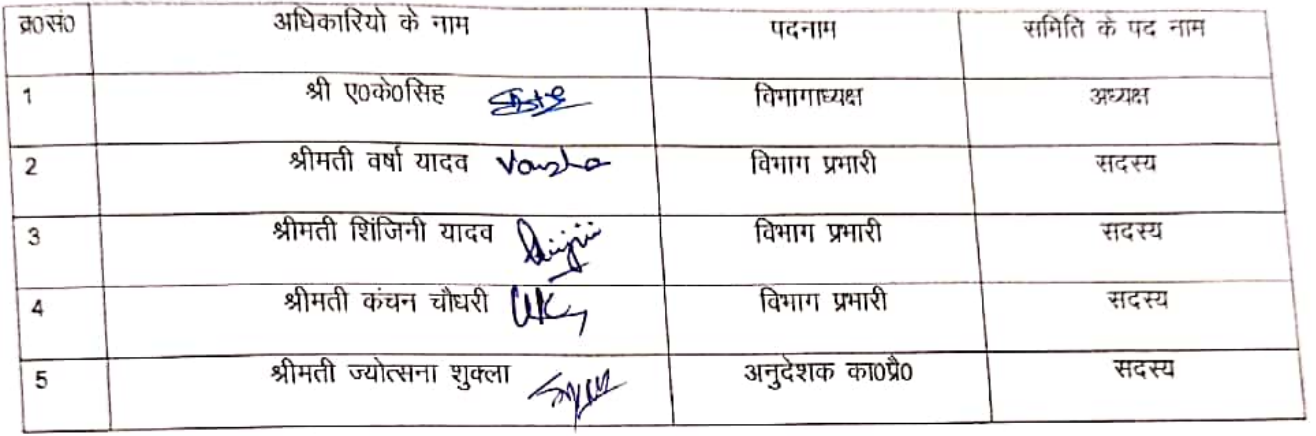 क्र०सं० अधिकारियो के नाम पदनाम समिति के पद नाम
1 श्री ए०के०सिह विभागाध्यक्ष अध्यक्ष
2 श्रीमती वर्षा यादव Varsha विभाग प्रभारी सदस्य
3 श्रीमती शिंजिनी यादव विभाग प्रभारी सदस्य
4 श्रीमती कंचन चौधरी विभाग प्रभारी सदस्य
5 श्रीमती ज्योत्सना शुक्ला अनुदेशक का०प्रै० सदस्य